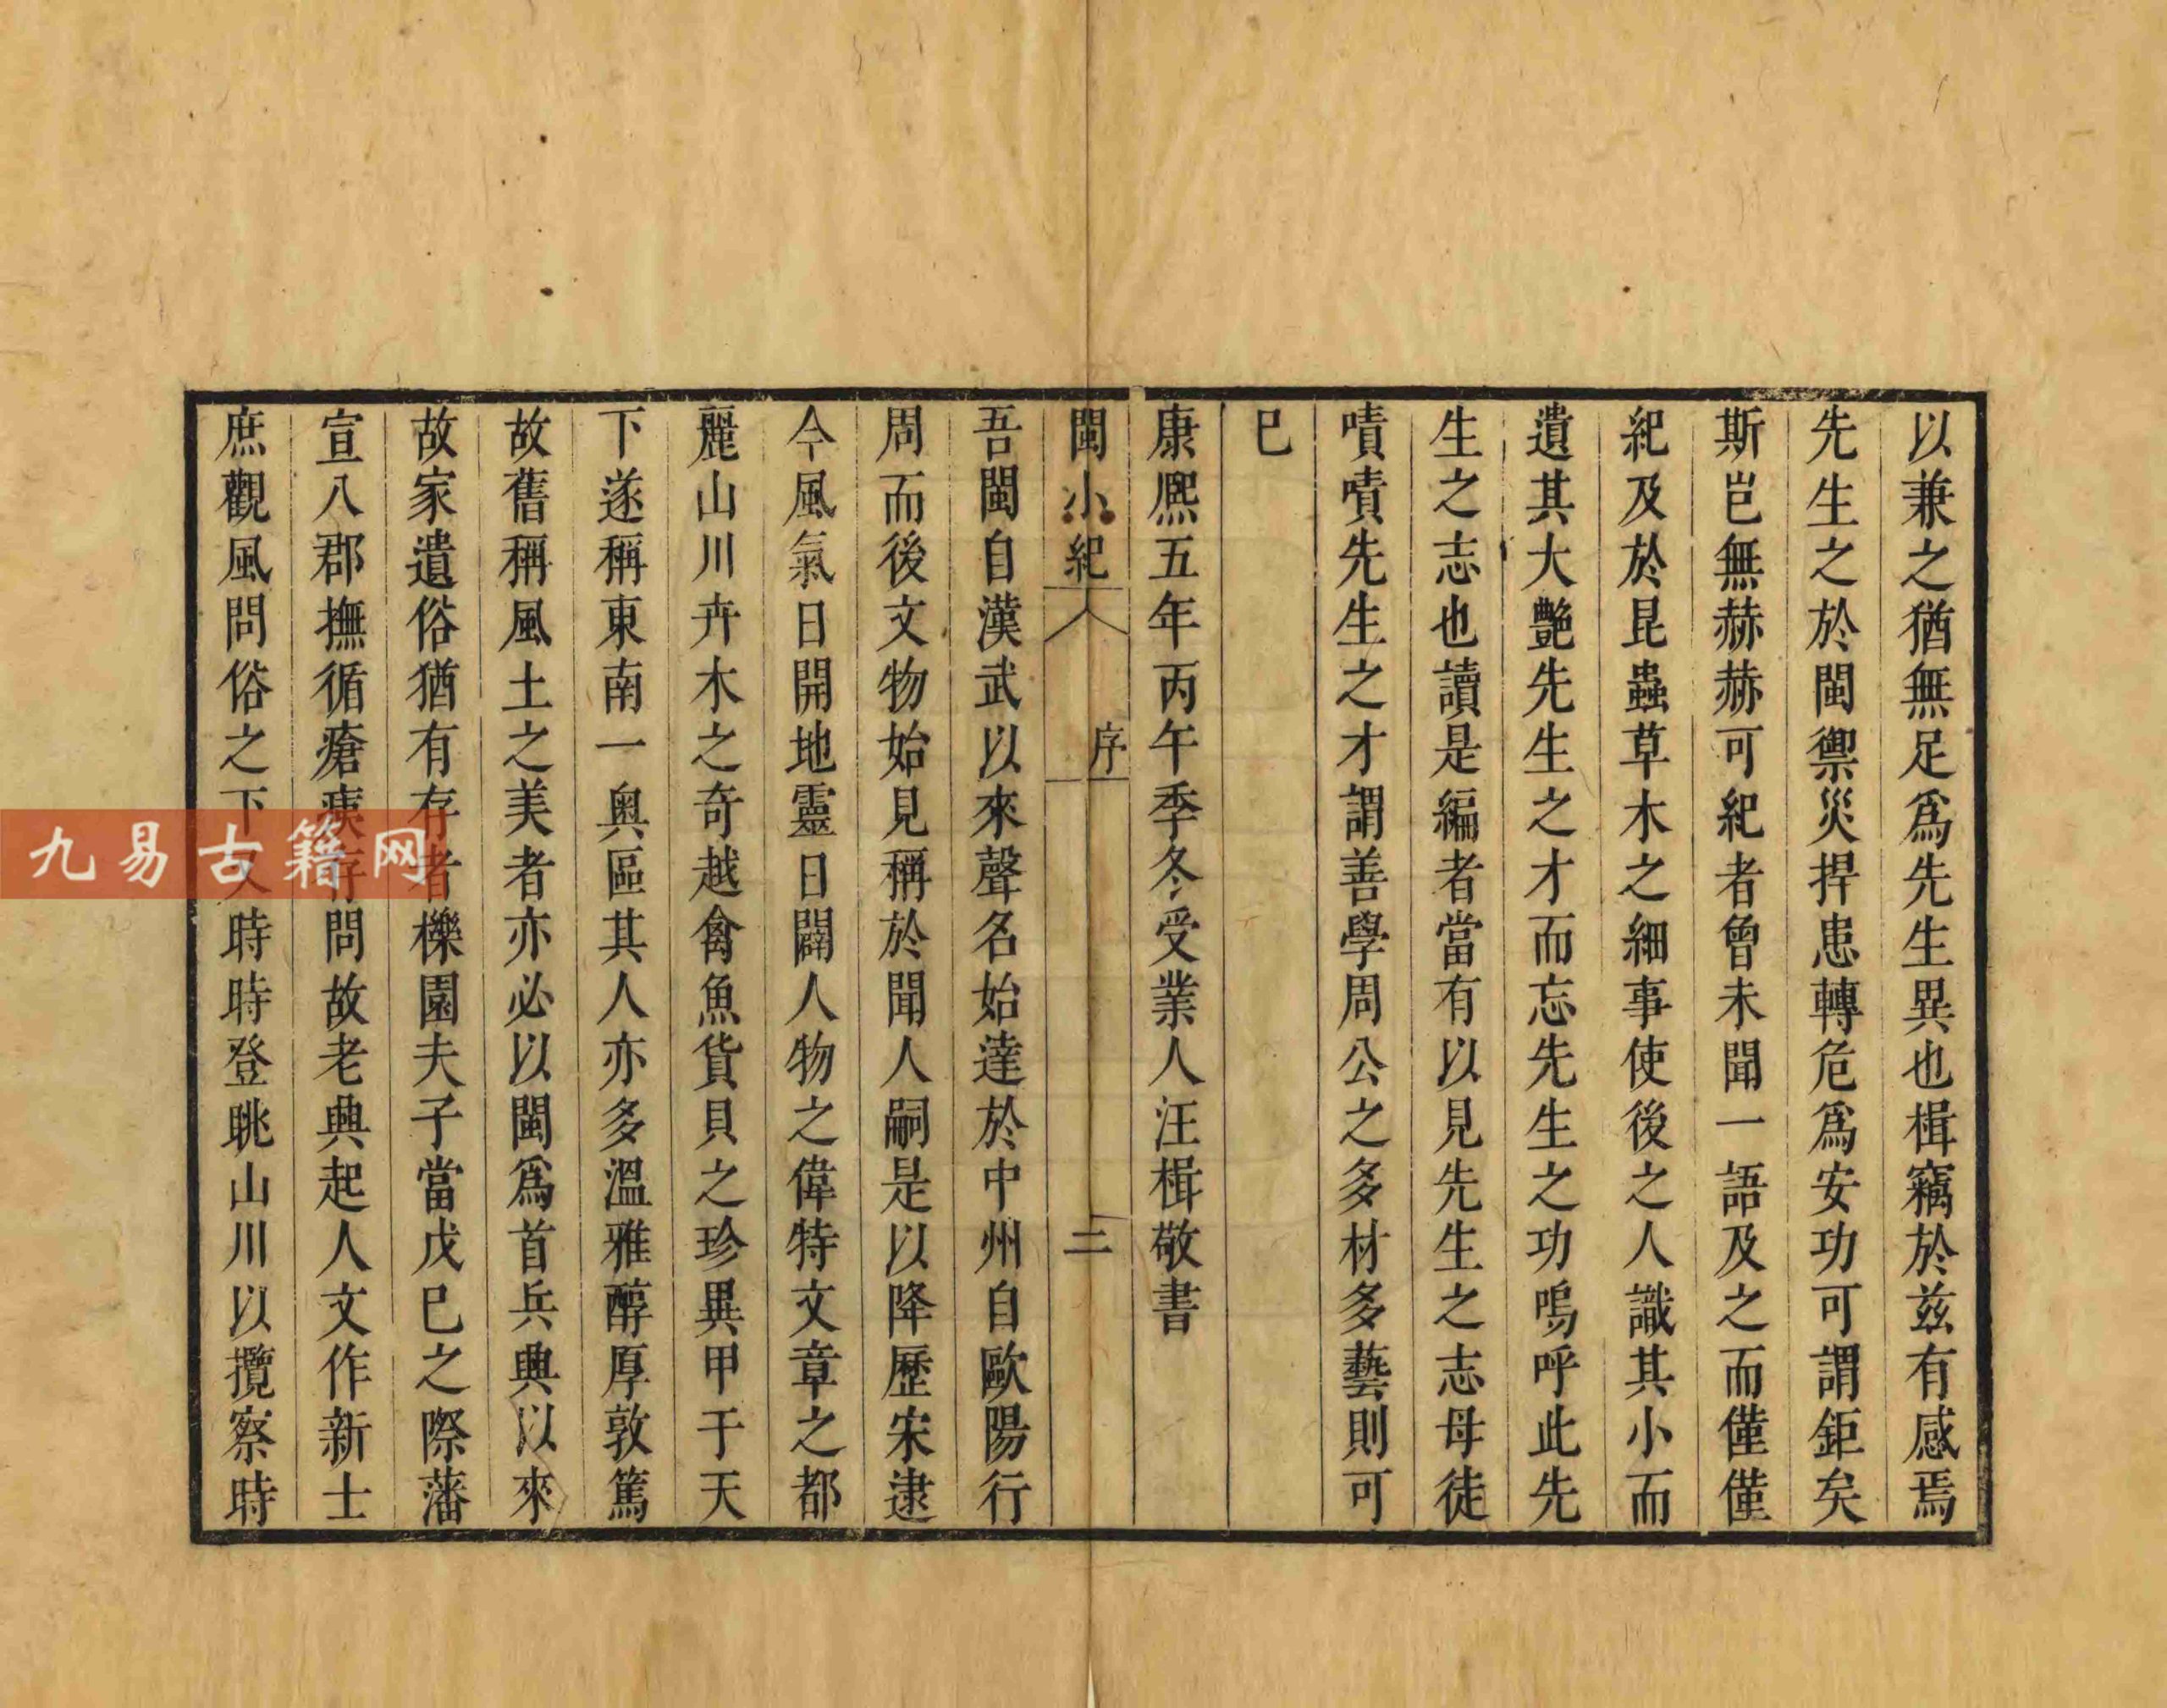 以兼之猶無足爲先生異也楫竊於茲有感焉
先生之於閩禦災捍患轉危爲安功可謂鉅矣
斯豈無赫赫可紀者曾未聞一語及之而僅僅
紀及於昆蟲草木之細事使後之人識其小而
遺其大艷先生之才而忘先生之功嗚呼此先
生之志也讀是編者當有以見先生之志母徒
嘖嘖先生之才謂善學周公之多材多藝則可
巳
康熈五年丙午季冬受業人汪楫敬書
閩小紀
序
二
吾閩自漢武以來聲名始達於中州自歐陽行
周而後文物始見稱於聞人嗣是以降歷宋逮
今風氣日開地靈日闢人物之偉特文章之都
麗山川卉木之奇越禽魚貨貝之珍異甲于天
下遂稱東南一奥區其人亦多溫雅醇厚敦篤
故舊稱風土之美者亦必以閩爲首兵興以來
故家遺俗猶有存者櫟園夫子當戊巳之際藩
宣八郡撫循瘡痍存問故老興起人文作新士
庶觀風問俗之下又時時登眺山川以攬察時
九易古籍网